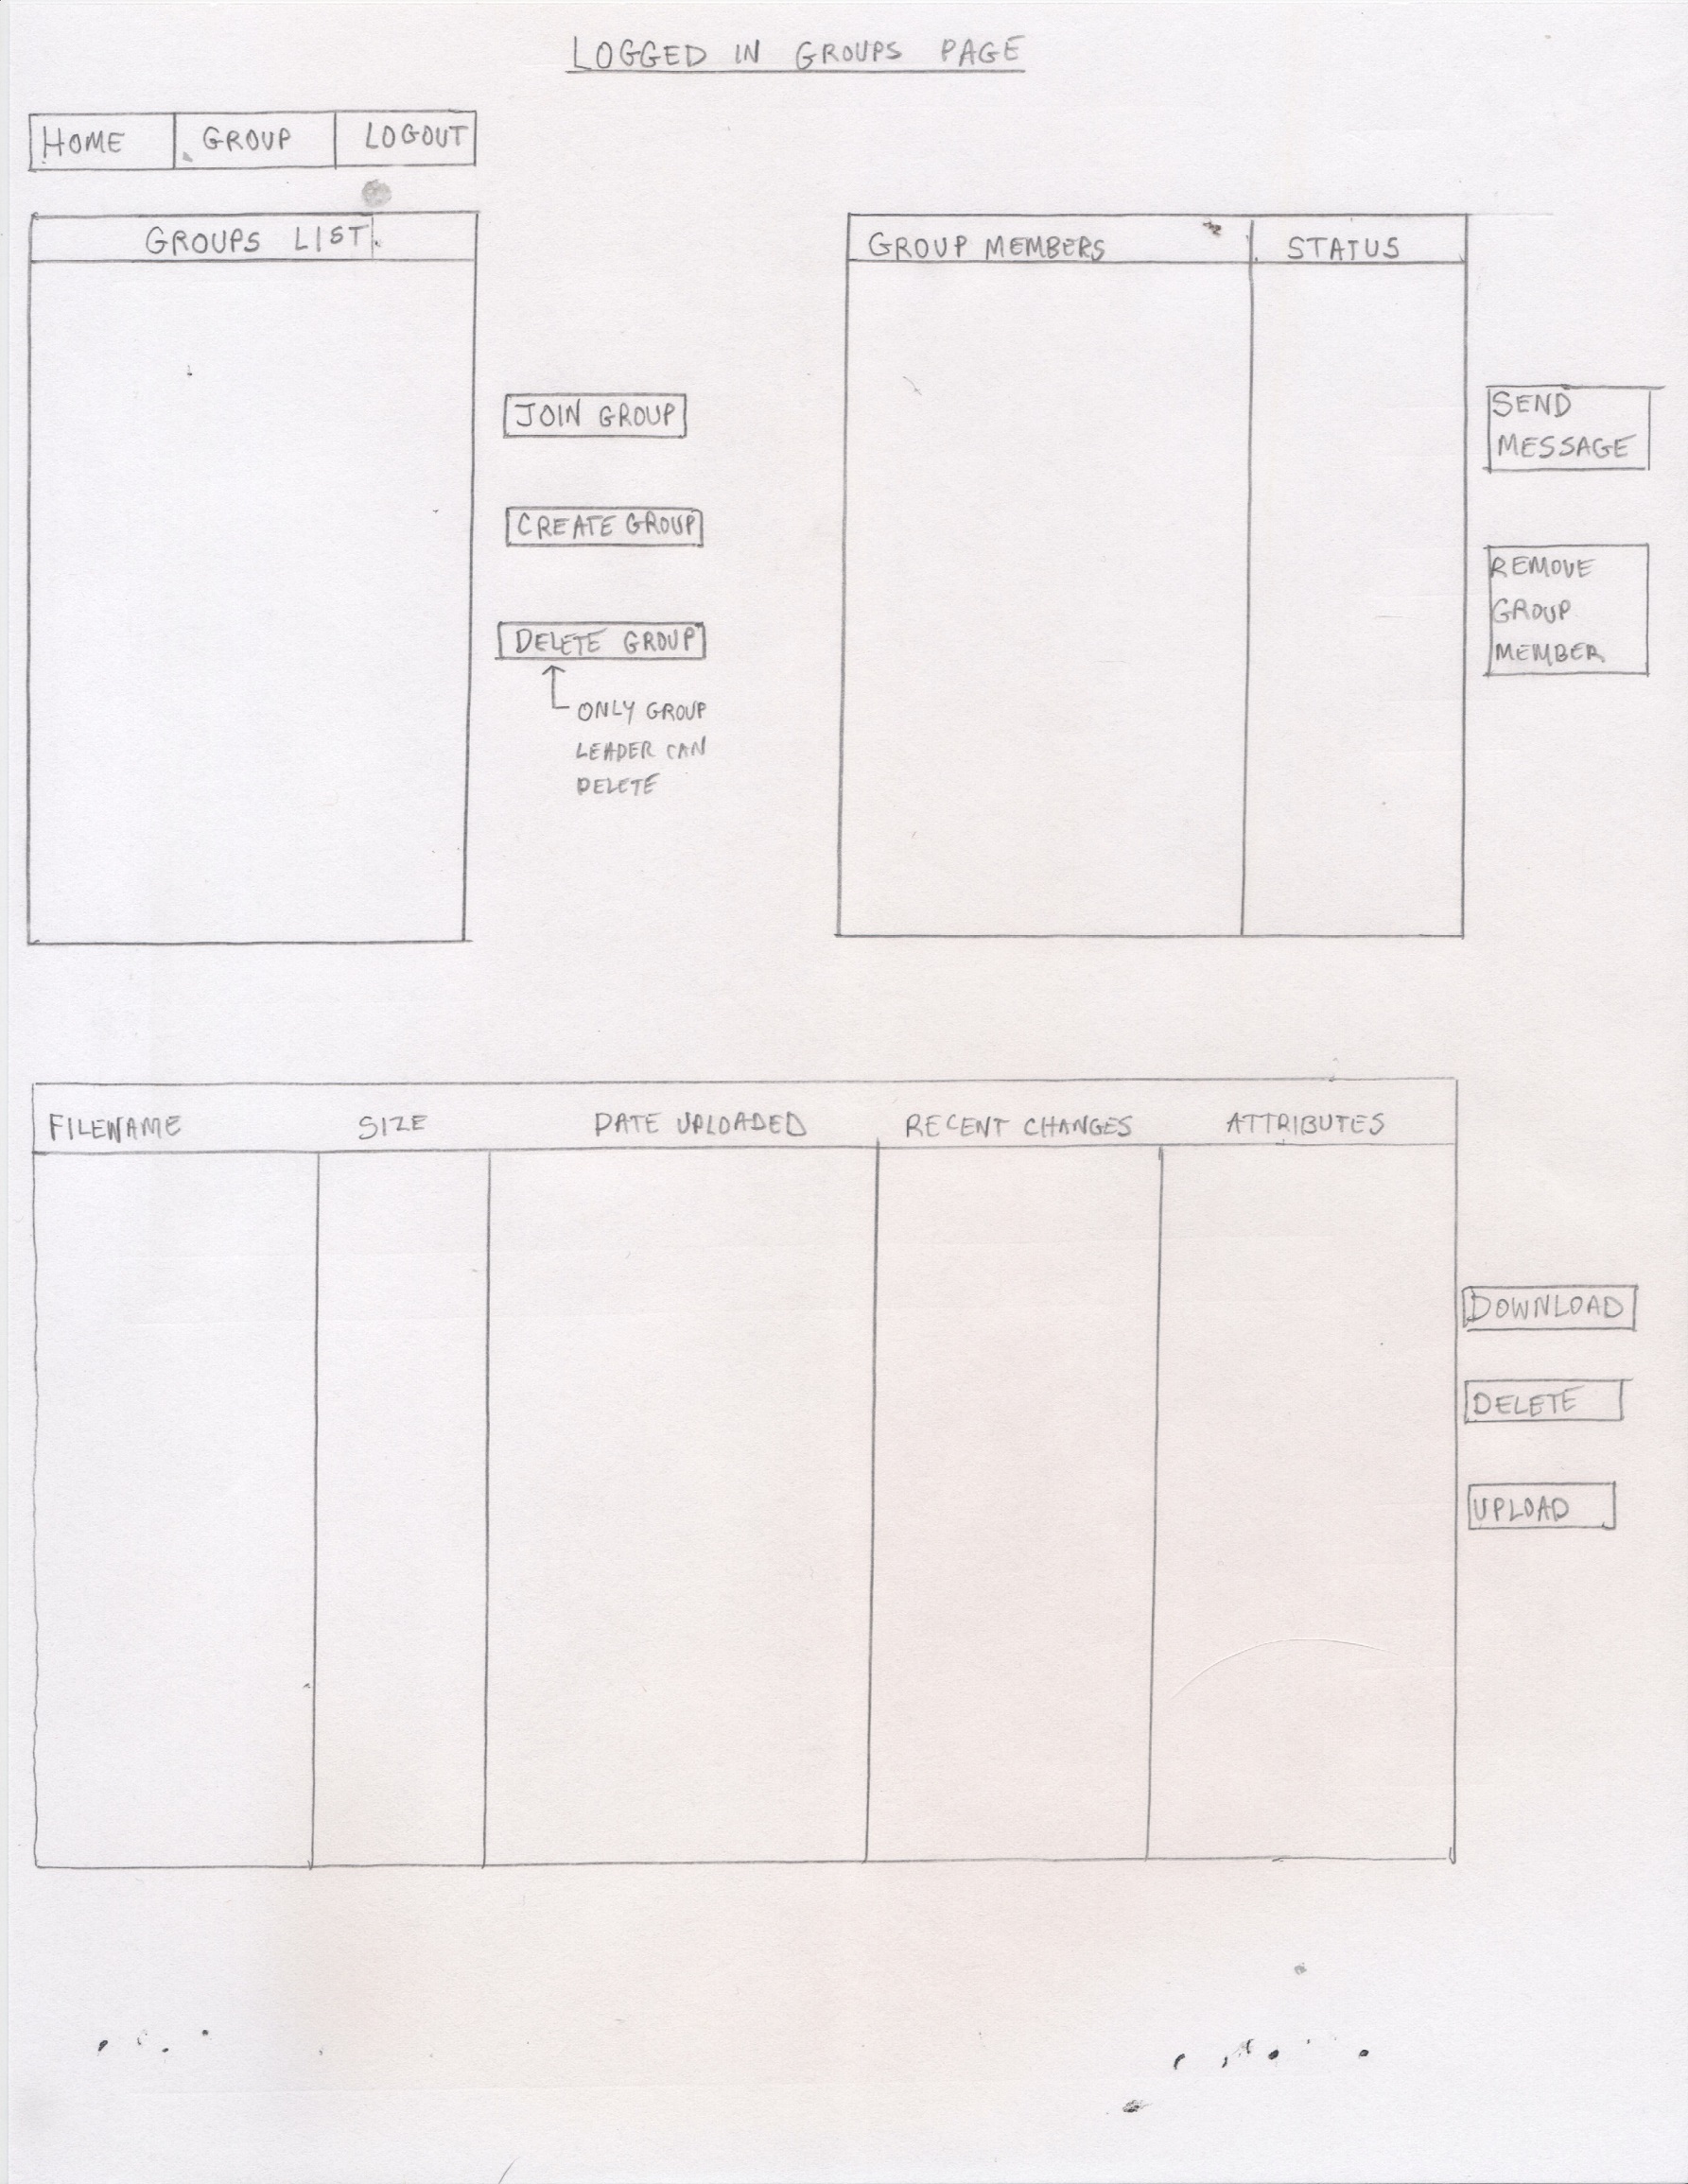 LOGGED IN GROUPS PAGE
HOME GROUP LOGOUT
GROUPS LIST
JOIN GROUP
CREATE GROUP
DELETE GROUP
ONLY GROUP
LEADER CAN
DELETE
GROUP MEMBERS STATUS
SEND
MESSAGE
REMOVE
GROUP
MEMBER
FILENAME SIZE DATE UPLOADED RECENT CHANGES ATTRIBUTES
DOWNLOAD
DELETE
UPLOAD